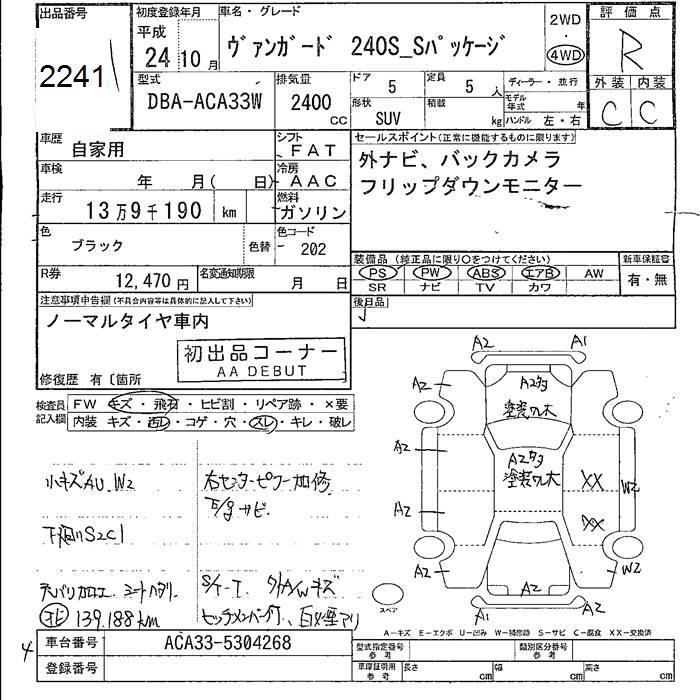 出品番号
2241
初度登録年月
平成
24年10月
車名・グレード
ヴァンガード 240S_Sパッケージ
2WD
・
4WD
評価点
R
型式
DBA-ACA33W
排気量
2400
CC
ドア
5
定員
5
人
ディーラー・並行
モデル年式
年
形状
SUV
積載
kg
ハンドル 左・右
外装 内装
C C
車歴
自家用
シフト
FAT
セールスポイント(正常に機能するものに限ります)
外ナビ、バックカメラ
フリップダウンモニター
車検
年 月( 日)
冷房
AAC
走行
13万9千190 km
燃料
ガソリン
色
ブラック
色替
色コード
- 202
装備品(純正品に限り○をつけてください)
PS PW ABS エアB AW
SR ナビ TV カワ
新車保証書
有・無
R券
12,470円
名変通知期限
月 日
後日品
注意事項申告欄(不具合内容等は具体的に記入して下さい)
ノーマルタイヤ車内
初出品コーナー
AA DEBUT
修復歴 有〔箇所
検査員記入欄
FW キズ・飛石・ヒビ割・リペア跡・×要
内装 キズ・汚レ・コゲ・穴・スレ・キレ・破レ
小キズAU、W2
右センターピラー加修
下回りS2C1
S/T-T、
139,188km
A2 A1
A2
A2タタ
塗装ワレ大
A2
A2タタ
塗装ワレ大
XX
W2
A2
XX
A2
A2
W2
A1 A2
スペア
A-キズ E-エクボ U-凹み W-補修跡 S-サビ C-腐食 XX-交換済
4
車台番号
ACA33-5304268
登録番号
型式指定番号
参考
類別区分番号
参考
車庫証明用
参考
長さ
cm
幅
cm
高さ
cm